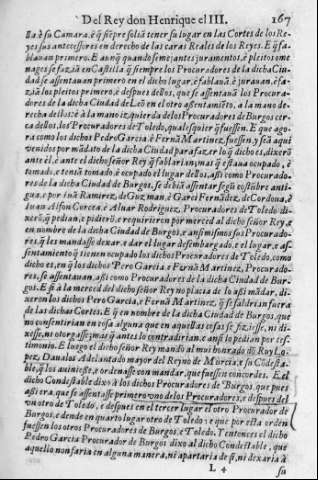 Del Rey don Henrique el III. 167
lla è su Camara. è q̃ siẽpre soliã tener su lugar en las Cortes de los Re-
yes sus antecessores en derecho de las caras Reales de los Reyes. E q̃ fa-
blauan primero. E aunq̃ quando semejantes juramentos, è pleitos ome
nages se faziã en Castilla q̃ siempre los Procuradores de la dicha Ciu-
dad se assentauan primero en el dicho lugar, è fablauã, è jurauan, è fa-
ziã los pleitos primero, è despues dellos, que se assentauã los Procura-
dores de la dicha Ciudad de Leõ en el otro assentamiẽto, a la mano de-
recha dellos: è à la mano izquierda de los Procuradores de Burgos cer-
ca dellos, los Procuradores de Toledo, qualesquier q̃ fuessen. E que ago-
ra como los dichos Pedro Garcia è Fernã Martinez, fuessen, y sã aqui
venidos por mãdato de la dicha Ciudad para fazer lo q̃ dicho es, dixerõ
ante èl, è ante el dicho señor Rey q̃ fablarian; mas q̃ estaua ocupado, è
tomado, è teniã tomado è ocupado el lugar dellos, assi como Procurado-
res de la dicha Ciudad de Burgos, se debiã assentar segũ costũbre anti-
gua, e por ruã Ramirez de Guzman, è Garci Fernãdez, de Cordoua, è
Iuan Alfon Corcea, è Aluar Rodriguez, Procuradores de Toledo di-
xerõ, q̃ pedian, e pidierõ, e requirieron por merced al dicho señor Rey, e
en nombre de la dicha Ciudad de Burgos, e ansi mismo sus Procurado-
res, q̃ les mandasse dexar, e dar el lugar desembargado, e el lugar, e as-
sentamiento q̃ tienen ocupado los dichos Procuradores de Toledo, como
dicho es, en q̃ los dichos Pero Garcia, e Fernã Martinez, Procurado-
res, se assentauan, assi como Procuradores de la dicha Ciudad de Bur-
gos. E si à la merced del dicho señor Rey no placia de lo assi mãdar, di-
xeron los dichos Pero Garcia, e Fernã Martinez, q̃ se saldrian fuera
de las dichas Cortes. E q̃ en nombre de la dicha Ciudad de Burgos, que
no consentirian en cosa alguna que en aquellas cosas se fiziesse, ni di-
xesse, ni otorgasse; mas q̃ antes lo contradirian, e ansi lo pedian por tes-
timonio. E luego el dicho señor Rey mandò al muy honrado dõ Ruy Lo-
pez Daualos Adelantado mayor del Reyno de Murcia, e su Cõdesta-
ble, q̃ los auiniesse, e ordenasse con mandar, que fuessen concordes. E el
dicho Condestable dixo à los dichos Procuradores de Burgos, que pues
assi era, que se assentasse primero vno de los Procuradores, e despues del
vn otro de Toledo, e despues en el tercer lugar el otro Procurador de
Burgos, e dende en quarto lugar otro de Toledo: e que por esta orden
fuessen los otros Procuradores, e los de Toledo. Y entonces el dicho
Pedro Garcia Procurador de Burgos dixo al dicho Condestable, que
aquello non faria en alguna manera, ni apartaria de si, ni dexaria à
L 4 su